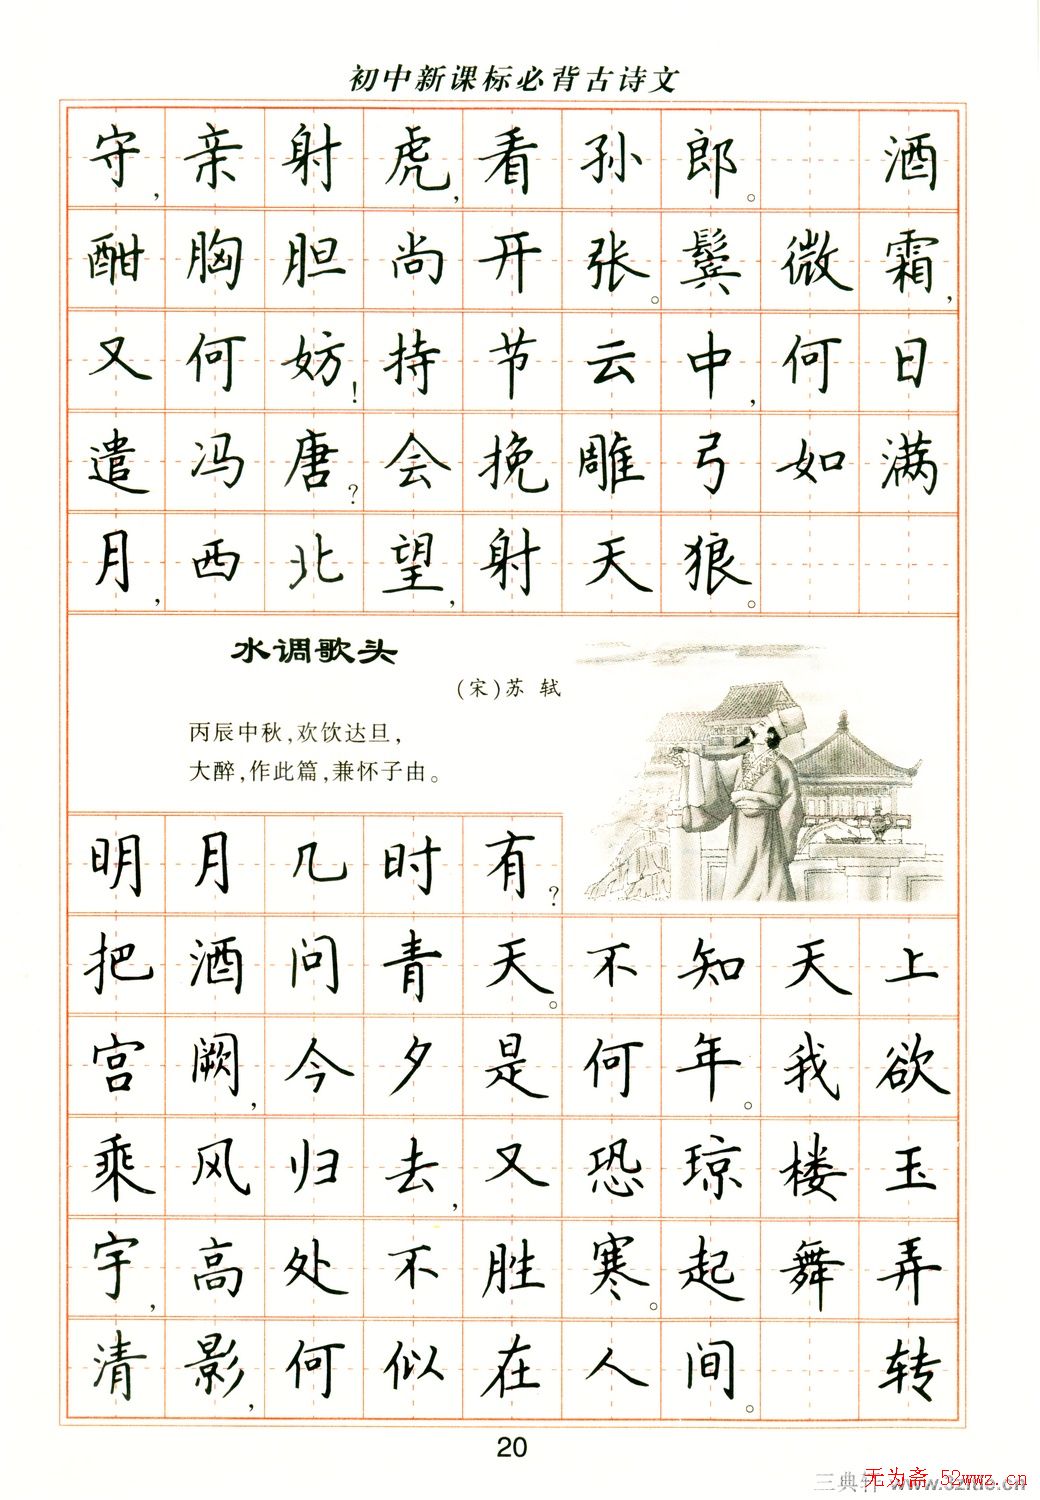 初中新课标必背古诗文
守，亲射虎，看孙郎。 酒
酣胸胆尚开张。鬓微霜，
又何妨！持节云中，何日
遣冯唐？会挽雕弓如满
月，西北望，射天狼。
水调歌头
（宋）苏 轼
丙辰中秋，欢饮达旦，
大醉，作此篇，兼怀子由。
明月几时有？
把酒问青天。不知天上
宫阙，今夕是何年。我欲
乘风归去，又恐琼楼玉
宇，高处不胜寒。起舞弄
清影，何似在人间。 转
20
无为斋.52wwz.cn